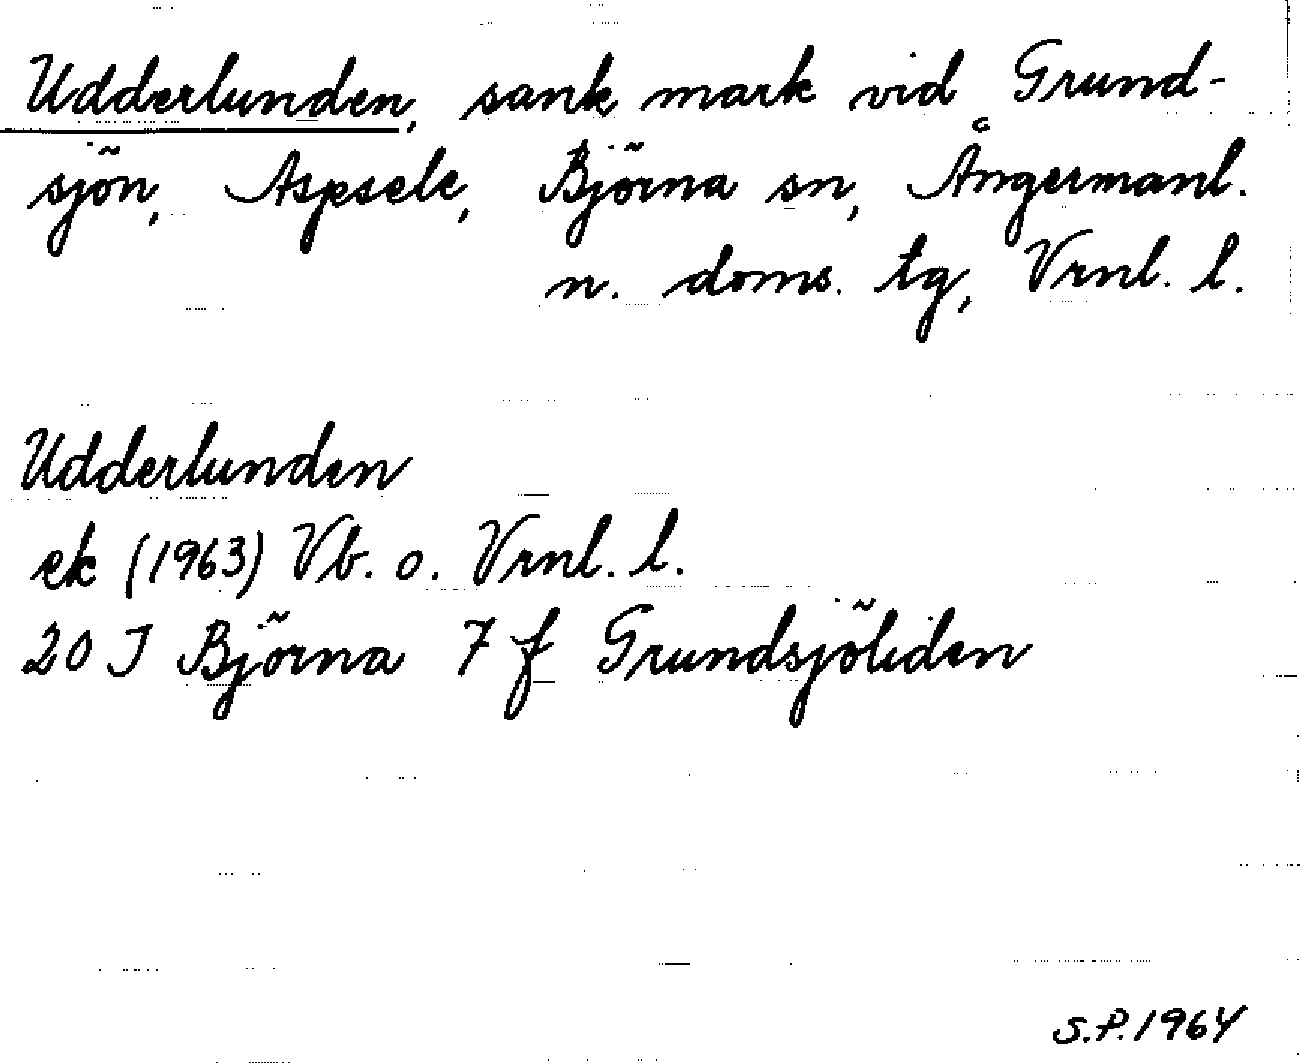 Udderlunden, sank mark vid Grund-
sjön, Aspsele, Björna sn, Ångermanl.
n. doms. tg, Vrnl. l.
Udderlunden
ek (1963) Vb. o. Vrnl. l.
20 J Björna 7 f Grundsjöliden
S.P. 1964